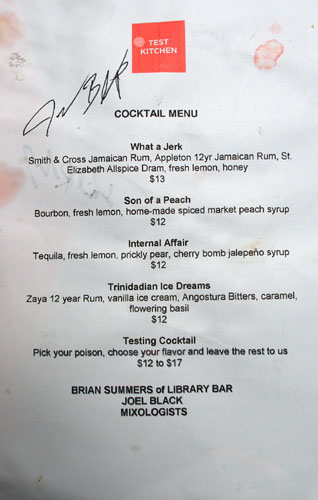 TEST
KITCHEN
COCKTAIL MENU
What a Jerk
Smith & Cross Jamaican Rum, Appleton 12yr Jamaican Rum, St.
Elizabeth Allspice Dram, fresh lemon, honey
$13
Son of a Peach
Bourbon, fresh lemon, home-made spiced market peach syrup
$12
Internal Affair
Tequila, fresh lemon, prickly pear, cherry bomb jalapeño syrup
$12
Trinidadian Ice Dreams
Zaya 12 year Rum, vanilla ice cream, Angostura Bitters, caramel,
flowering basil
$12
Testing Cocktail
Pick your poison, choose your flavor and leave the rest to us
$12 to $17
BRIAN SUMMERS of LIBRARY BAR
JOEL BLACK
MIXOLOGISTS